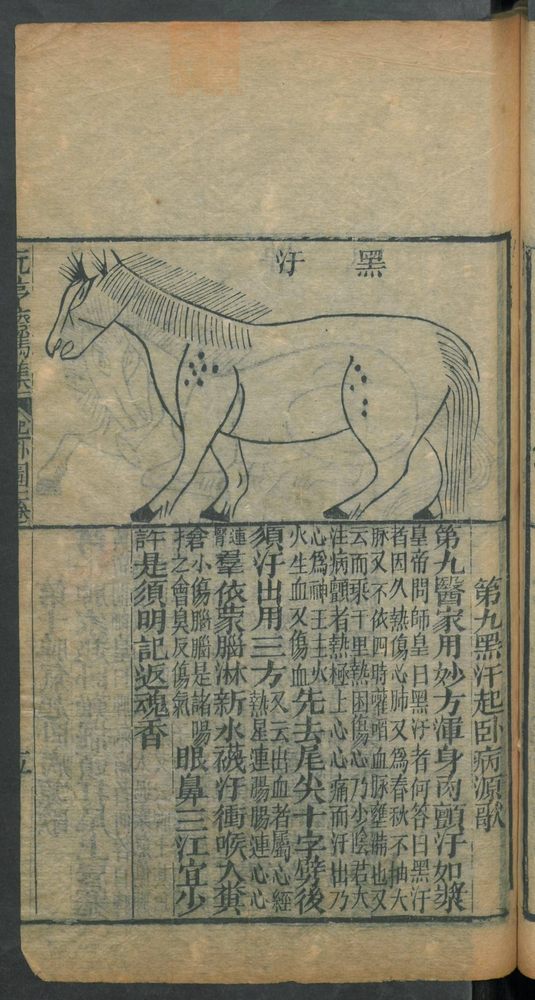 黑汗
第九黑汗起卧病源歌
第九醫家用妙方渾身肉顫汗如漿
皇帝問師皇曰黑汗者何答曰黑汗
者因久熱傷心肺又爲春秋不抽大
脉又不依四時藿啗血脉壅滿也又
云而乘千里熱困傷心乃少陰君大
注病顫者熱極上心心痛而汗出乃
心爲神王主火
火生血又傷血
先去尾尖十字劈後
須汗出用三方
又云出血者屬心經
熱星連腸腸連心心
連腎
羣依蒙腦淋新水襪汗衝喉入糞
小傷腦腦是諸陽
之會臭反傷氣
眼鼻三江宜少
許是須明記返魂香
元亨療馬集
起卧圖三卷
五